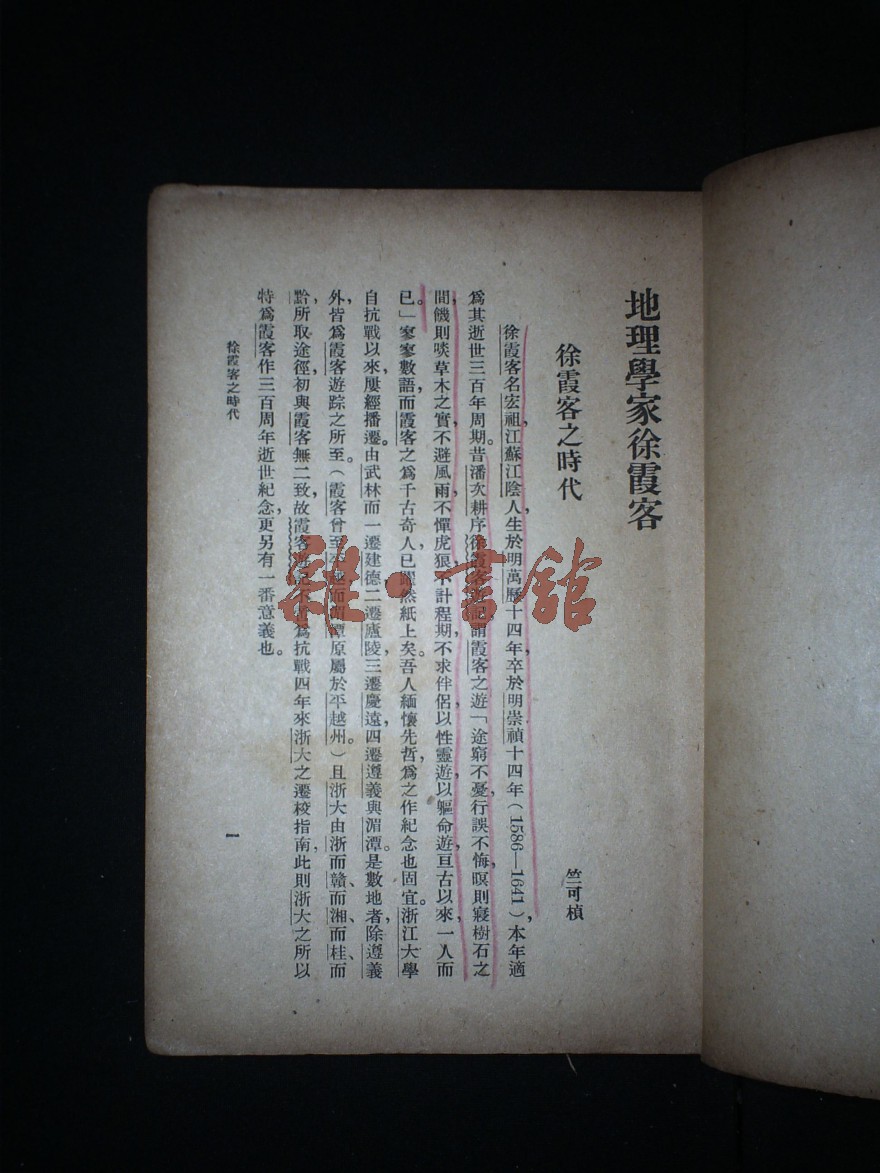 地理學家徐霞客
徐霞客之時代
竺可楨
徐霞客名宏祖，江蘇江陰人，生於明萬曆十四年，卒於明崇禎十四年（1586—1641），本年適
爲其逝世三百年周期。昔潘次耕序徐霞客遊記謂霞客之遊「途窮不憂，行誤不悔，暝則寢樹石之
間，饑則啖草木之實，不避風雨，不憚虎狼，不計程期，不求伴侶，以性靈遊，以軀命遊，亘古以來，一人而
已。」寥寥數語，而霞客之爲千古奇人，已躍然紙上矣。吾人緬懷先哲，爲之作紀念也固宜。浙江大學
自抗戰以來，屢經播遷。由武林而一遷建德，二遷廬陵，三遷慶遠，四遷遵義與湄潭。是數地者，除遵義
外，皆爲霞客遊踪之所至。（霞客曾至平越而湄潭原屬於平越州。）且浙大由浙而贛、而湘、而桂、而
黔，所取途徑，初與霞客無二致，故霞客遊記不啻爲抗戰四年來浙大之遷校指南，此則浙大之所以
特爲霞客作三百周年逝世紀念，更另有一番意義也。
徐霞客之時代
一
雜·書館